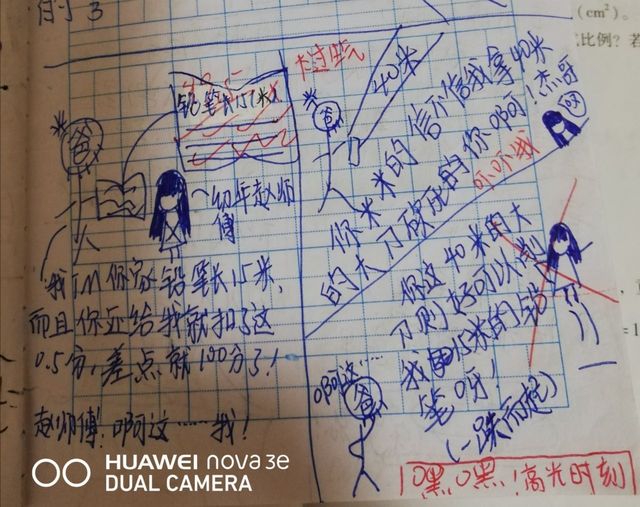 的 3
(cm²)。
比例？若
铅笔长15米
爸
~幼年赵师
傅
我TM你家铅笔长15米，
而且你还给我就扣了这
0.5分，差点就100分了！
赵师傅：啊这……我！
大过生气
40米
爸
你米米的信不信我拿40米
的大刀砍死的你啊！杰哥
吓吓我
你这40米的大
刀则好可以削
我15米的铅
笔呀！
(一跃而起)
啊这……
爸
嘿，嘿！高光时刻
HUAWEI nova 3e
DUAL CAMERA